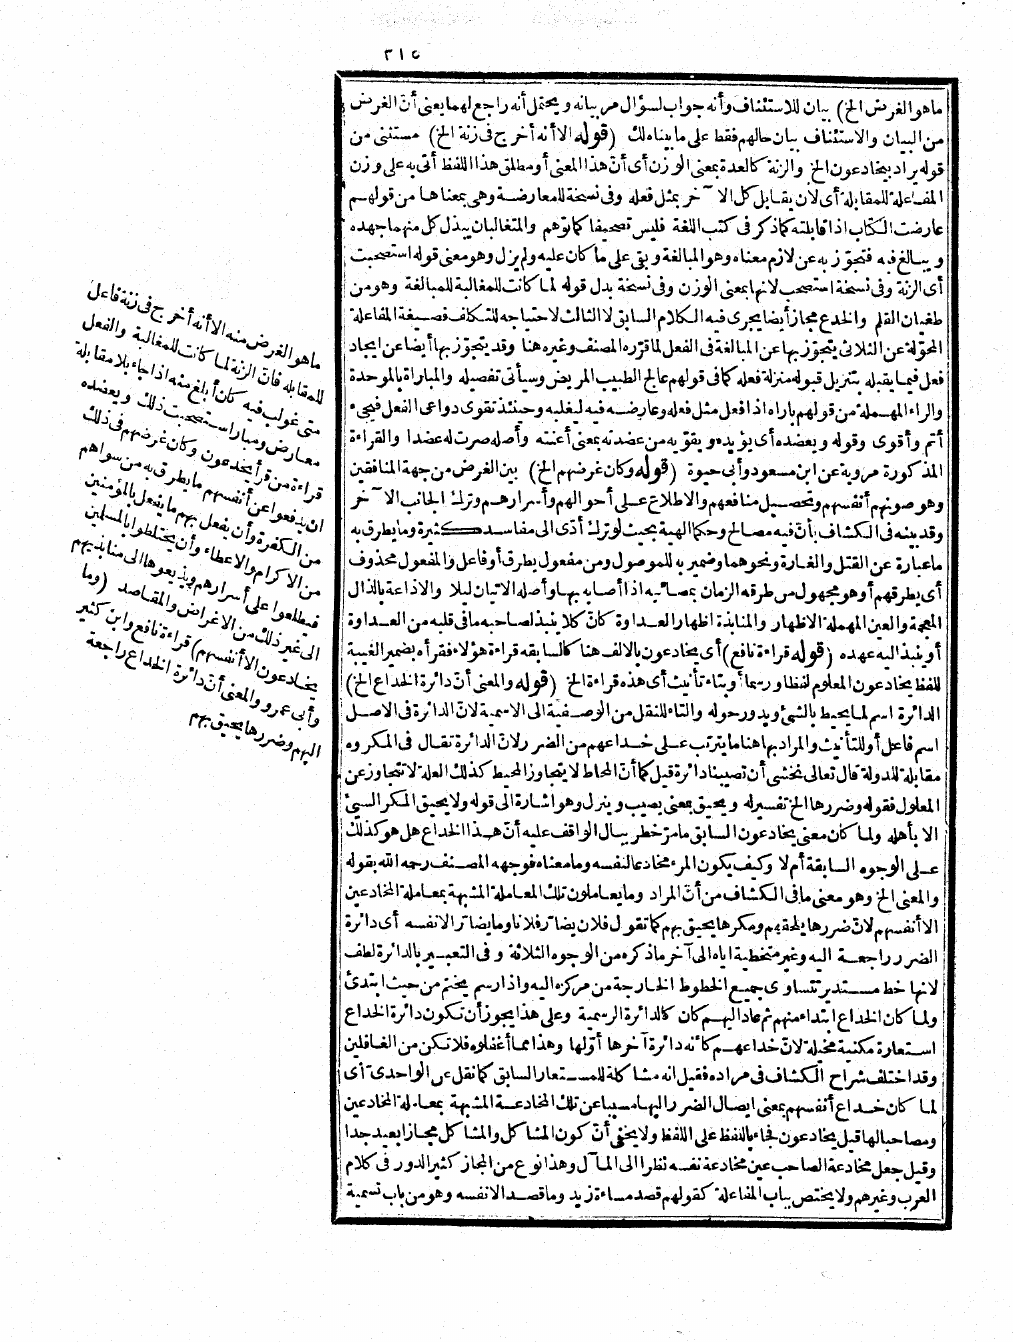 ٣١٥
ما هو الغرض الخ) بيان للاستئناف وأنه جواب لسؤال مر بيانه ويحتمل أنه راجع لهما يعني أنّ الغرض
من البيان والاستئناف بيان حالهم فقط على ما بيناه لك (قوله الا أنه أخرج في زنة الخ) مستثنى من
قوله يراد بيخادعون الخ والزنة كالعدة بمعنى الوزن أي أنّ هذا المعنى أو مطلق هذا اللفظ أتى به على وزن
المفاعلة للمقابلة أي لان يقابل كل الآخر بمثل فعله وفي نسخة للمعارضة وهي بمعناها من قولهم
عارضت الكتاب اذا قابلته كما ذكر في كتب اللغة فليس تصحيفا كما توهم والمتغالبان يبذل كل منهما جهده
ويبالغ فيه فتجوّز به عن لازم معناه وهو المبالغة وبقي على ما كان عليه ولم يزل وهو معنى قوله استصحبت
أي الزنة وفي نسخة استصحب لانها بمعنى الوزن وفي نسخة بدل قوله لما كانت للمغالبة للمبالغة وهو من
طغيان القلم والخدع مجاز أيضا يجري فيه الكلام السابق لا الثالث لاحتياجه للتكلف فصيغة المفاعلة
المحوّلة عن الثلاثي يتجوّز بها عن المبالغة في الفعل لما قرّره المصنف وغيره هنا وقد يتجوّز بها أيضا عن ايجاد
فعل فيما يقبله بتنزيل قبوله منزلة فعله كما في قولهم عالج الطبيب المريض وسيأتي تفصيله والمباراة بالموحدة
والراء المهملة من قولهم باراه اذا فعل مثل فعله وعارضه فيه ليغلبه وحينئذ تقوى دواعي الفعل فيجيء
أتم وأقوى وقوله ويعضده أي يؤيده ويقويه من عضدته بمعنى أعنته وأصله صرت له عضدا والقراءة
المذكورة مروية عن ابن مسعود وأبي حيوة (قوله وكان غرضهم الخ) بين الغرض من جهة المنافقين
وهو صونهم أنفسهم وتحصيل منافعهم والاطلاع على أحوالهم وأسرارهم وترك الجانب الآخر
وقد بينه في الكشاف بأنّ فيه مصالح وحكما الهية بحيث لو ترك أدى الى مفاسد كثيرة وما يطرق به
ما عبارة عن القتل والغارة ونحوهما وضمير به للموصول ومن مفعول يطرق أو فاعل والمفعول محذوف
أي يطرقهم أو هو مجهول من طرقه الزمان بمصائبه اذا أصابه بها وأصله الاتيان ليلا والاذاعة بالذال
المعجمة والعين المهملة الاظهار والمنابذة اظهار العداوة كأنّ كلا ينبذ لصاحبه ما في قلبه من العداوة
أو ينبذ اليه عهده (قوله قراءة نافع) أي يخادعون بالالف هنا كالسابقه قراءة هؤلاء فقرأه بضمير الغيبة
للفظ يخادعون المعلوم لفظا ورسما أو بتاء تأنيث أي هذه قراءة الخ (قوله والمعنى أنّ دائرة الخداع الخ)
الدائرة اسم لما يحيط بالشئ ويدور حوله والتاء للنقل من الوصفية الى الاسمية لانّ الدائرة في الاصل
اسم فاعل أو للتأنيث والمراد بها هنا ما يترتب على خداعهم من الضرر لانّ الدائرة تقال في المكروه
مقابلة للدولة قال تعالى نخشى أن تصيبنا دائرة قيل كما أنّ المحاط لا يتجاوز المحيط كذلك العلة لا تتجاوز عن
المعلول فقوله وضررها الخ تفسير له ويحيق بمعنى يصيب وينزل وهو اشارة الى قوله ولا يحيق المكر السيئ
الا بأهله ولما كان معنى يخادعون السابق ما مرّ خطر ببال الواقف عليه أنّ هذا الخداع هل هو كذلك
على الوجوه السابقة أم لا وكيف يكون المرء مخادعا لنفسه وما معناه فوجهه المصنف رحمه الله بقوله
والمعنى الخ وهو معنى ما في الكشاف من أنّ المراد وما يعاملون تلك المعاملة المشبهة بمعاملة المخادعين
الا أنفسهم لانّ ضررها يلحقهم ومكرها يحيق بهم كما تقول فلان يضارّ فلانا وما يضارّ الا نفسه أي دائرة
الضرر راجعة اليه وغير متخطية اياه الى آخر ما ذكره من الوجوه الثلاثة وفي التعبير بالدائرة لطف
لانها خط مستدير تتساوى جميع الخطوط الخارجة من مركزه اليه واذا رسم يختم من حيث ابتدئ
ولما كان الخداع ابتداء منهم ثم عاد اليهم كان كالدائرة الرسمية وعلى هذا يجوز أن تكون دائرة الخداع
استعارة مكنية مخيلة لانّ خداعهم كأنه دائرة آخرها أوّلها وهذا مما أغفلوه فلا تكن من الغافلين
وقد اختلف شراح الكشاف في مراده فقيل انه مشاكلة للمستعار السابق كما نقل عن الواحدي أي
لما كان خداع أنفسهم بمعنى ايصال الضرر اليها مسببا عن تلك المخادعة المشبهة بمعاملة المخادعين
ومصاحبا لها قيل يخادعون فجاء باللفظ على اللفظ ولا يخفى أنّ كون المشاكل والمشاكل مجازا بعيد جدا
وقيل جعل مخادعة الصاحب عين مخادعة نفسه نظرا الى المآل وهذا نوع من المجاز كثير الدور في كلام
العرب وغيرهم ولا يختص بباب المفاعلة كقولهم قصد مساءة زيد وما قصد الا نفسه وهو من باب تسمية
ما هو الغرض منه الا أنه أخرج في زنة فاعل
للمقابلة فانّ الزنة لما كانت للمغالبة والفعل
متى غولب فيه كان أبلغ منه اذا جاء بلا مقابلة
معارض ومبار استصحبت ذلك ويعضده
قراءة من قرأ يخدعون وكان غرضهم في ذلك
ان يدفعوا عن أنفسهم ما يطرق به من سواهم
من الكفرة وأن يفعل بهم ما يفعل بالمؤمنين
من الاكرام والاعطاء وأن يختلطوا بالمسلمين
فيطلعوا على أسرارهم ويذيعوها الى منابذيهم
الى غير ذلك من الاغراض والمقاصد (وما
يخادعون الا أنفسهم) قراءة نافع وابن كثير
وأبي عمرو والمعنى أنّ دائرة الخداع راجعة
اليهم وضررها يحيق بهم